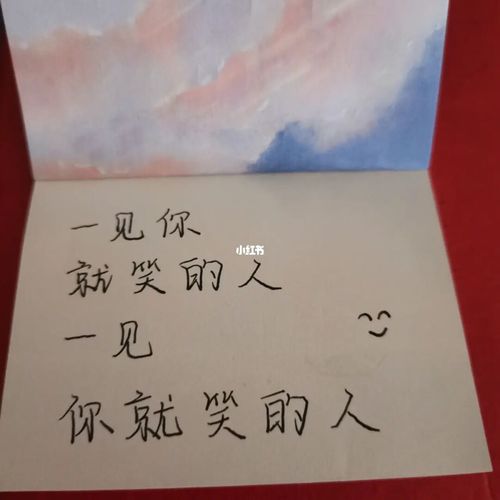 一见你
小红书
就笑的人
一见
你就笑的人